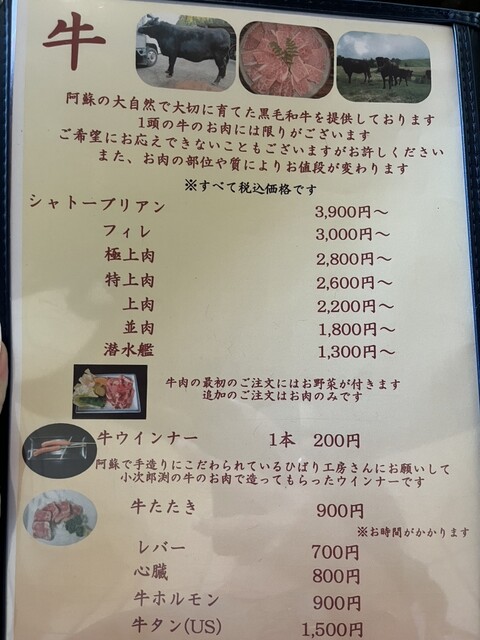 牛
阿蘇の大自然で大切に育てた黒毛和牛を提供しております
1頭の牛のお肉には限りがございます
ご希望にお応えできないこともございますがお許しください
また、お肉の部位や質によりお値段が変わります
※すべて税込価格です
シャトーブリアン 3,900円〜
フィレ 3,000円〜
極上肉 2,800円〜
特上肉 2,600円〜
上肉 2,200円〜
並肉 1,800円〜
潜水艦 1,300円〜
牛肉の最初のご注文にはお野菜が付きます
追加のご注文はお肉のみです
牛ウインナー 1本 200円
阿蘇で手造りにこだわられているひばり工房さんにお願いして
小次郎渕の牛のお肉で造ってもらったウインナーです
牛たたき 900円
※お時間がかかります
レバー 700円
心臓 800円
牛ホルモン 900円
牛タン(US) 1,500円